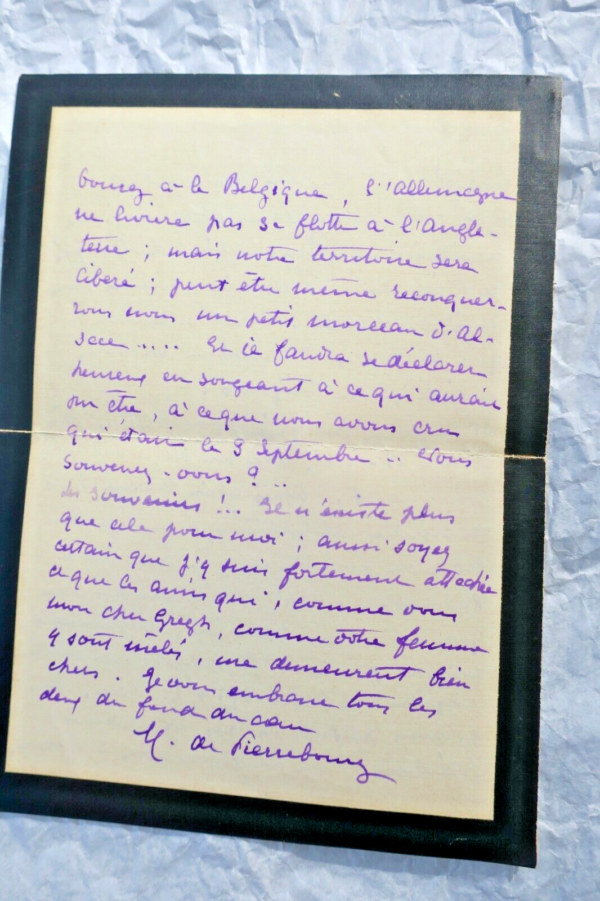 à la Belgique, l'Allemagne
ne livrera pas sa flotte à l'Angle-
terre ; mais notre territoire sera
libéré ; peut être même reconquer-
rons nous un petit morceau d'Al-
sace .... Et il faudra se déclarer
heureux en songeant à ce qui aurait
pu être, à ce que nous avons cru
qui était le 3 Septembre .. Vous
souvenez-vous ? ..
Les souvenirs !.. Il n'existe plus
que cela pour moi ; aussi soyez
certain que j'y suis fortement attachée
et que les amis qui, comme vous
mon cher Gregh, comme votre femme
y sont mêlés, me demeurent bien
chers. Je vous embrasse tous les
deux du fond du cœur
M. de Pierrebourg